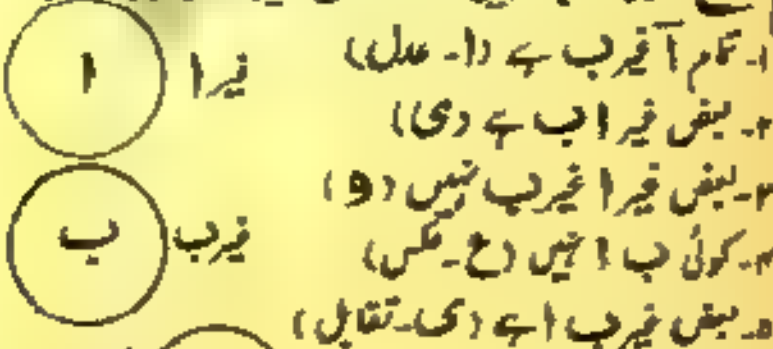 ۱۔ تمام آ غیر ب ہے (ا۔ عدل)
۲۔ بعض غیر ا ب ہے (ی)
۳۔ بعض غیر ا غیر ب نہیں (و)
۴۔ کوئی ب ا نہیں (ع۔ عکس)
۵۔ بعض غیر ب ا ہے (ی۔ تقابل)
ا
غیر ا
ب
غیر ب